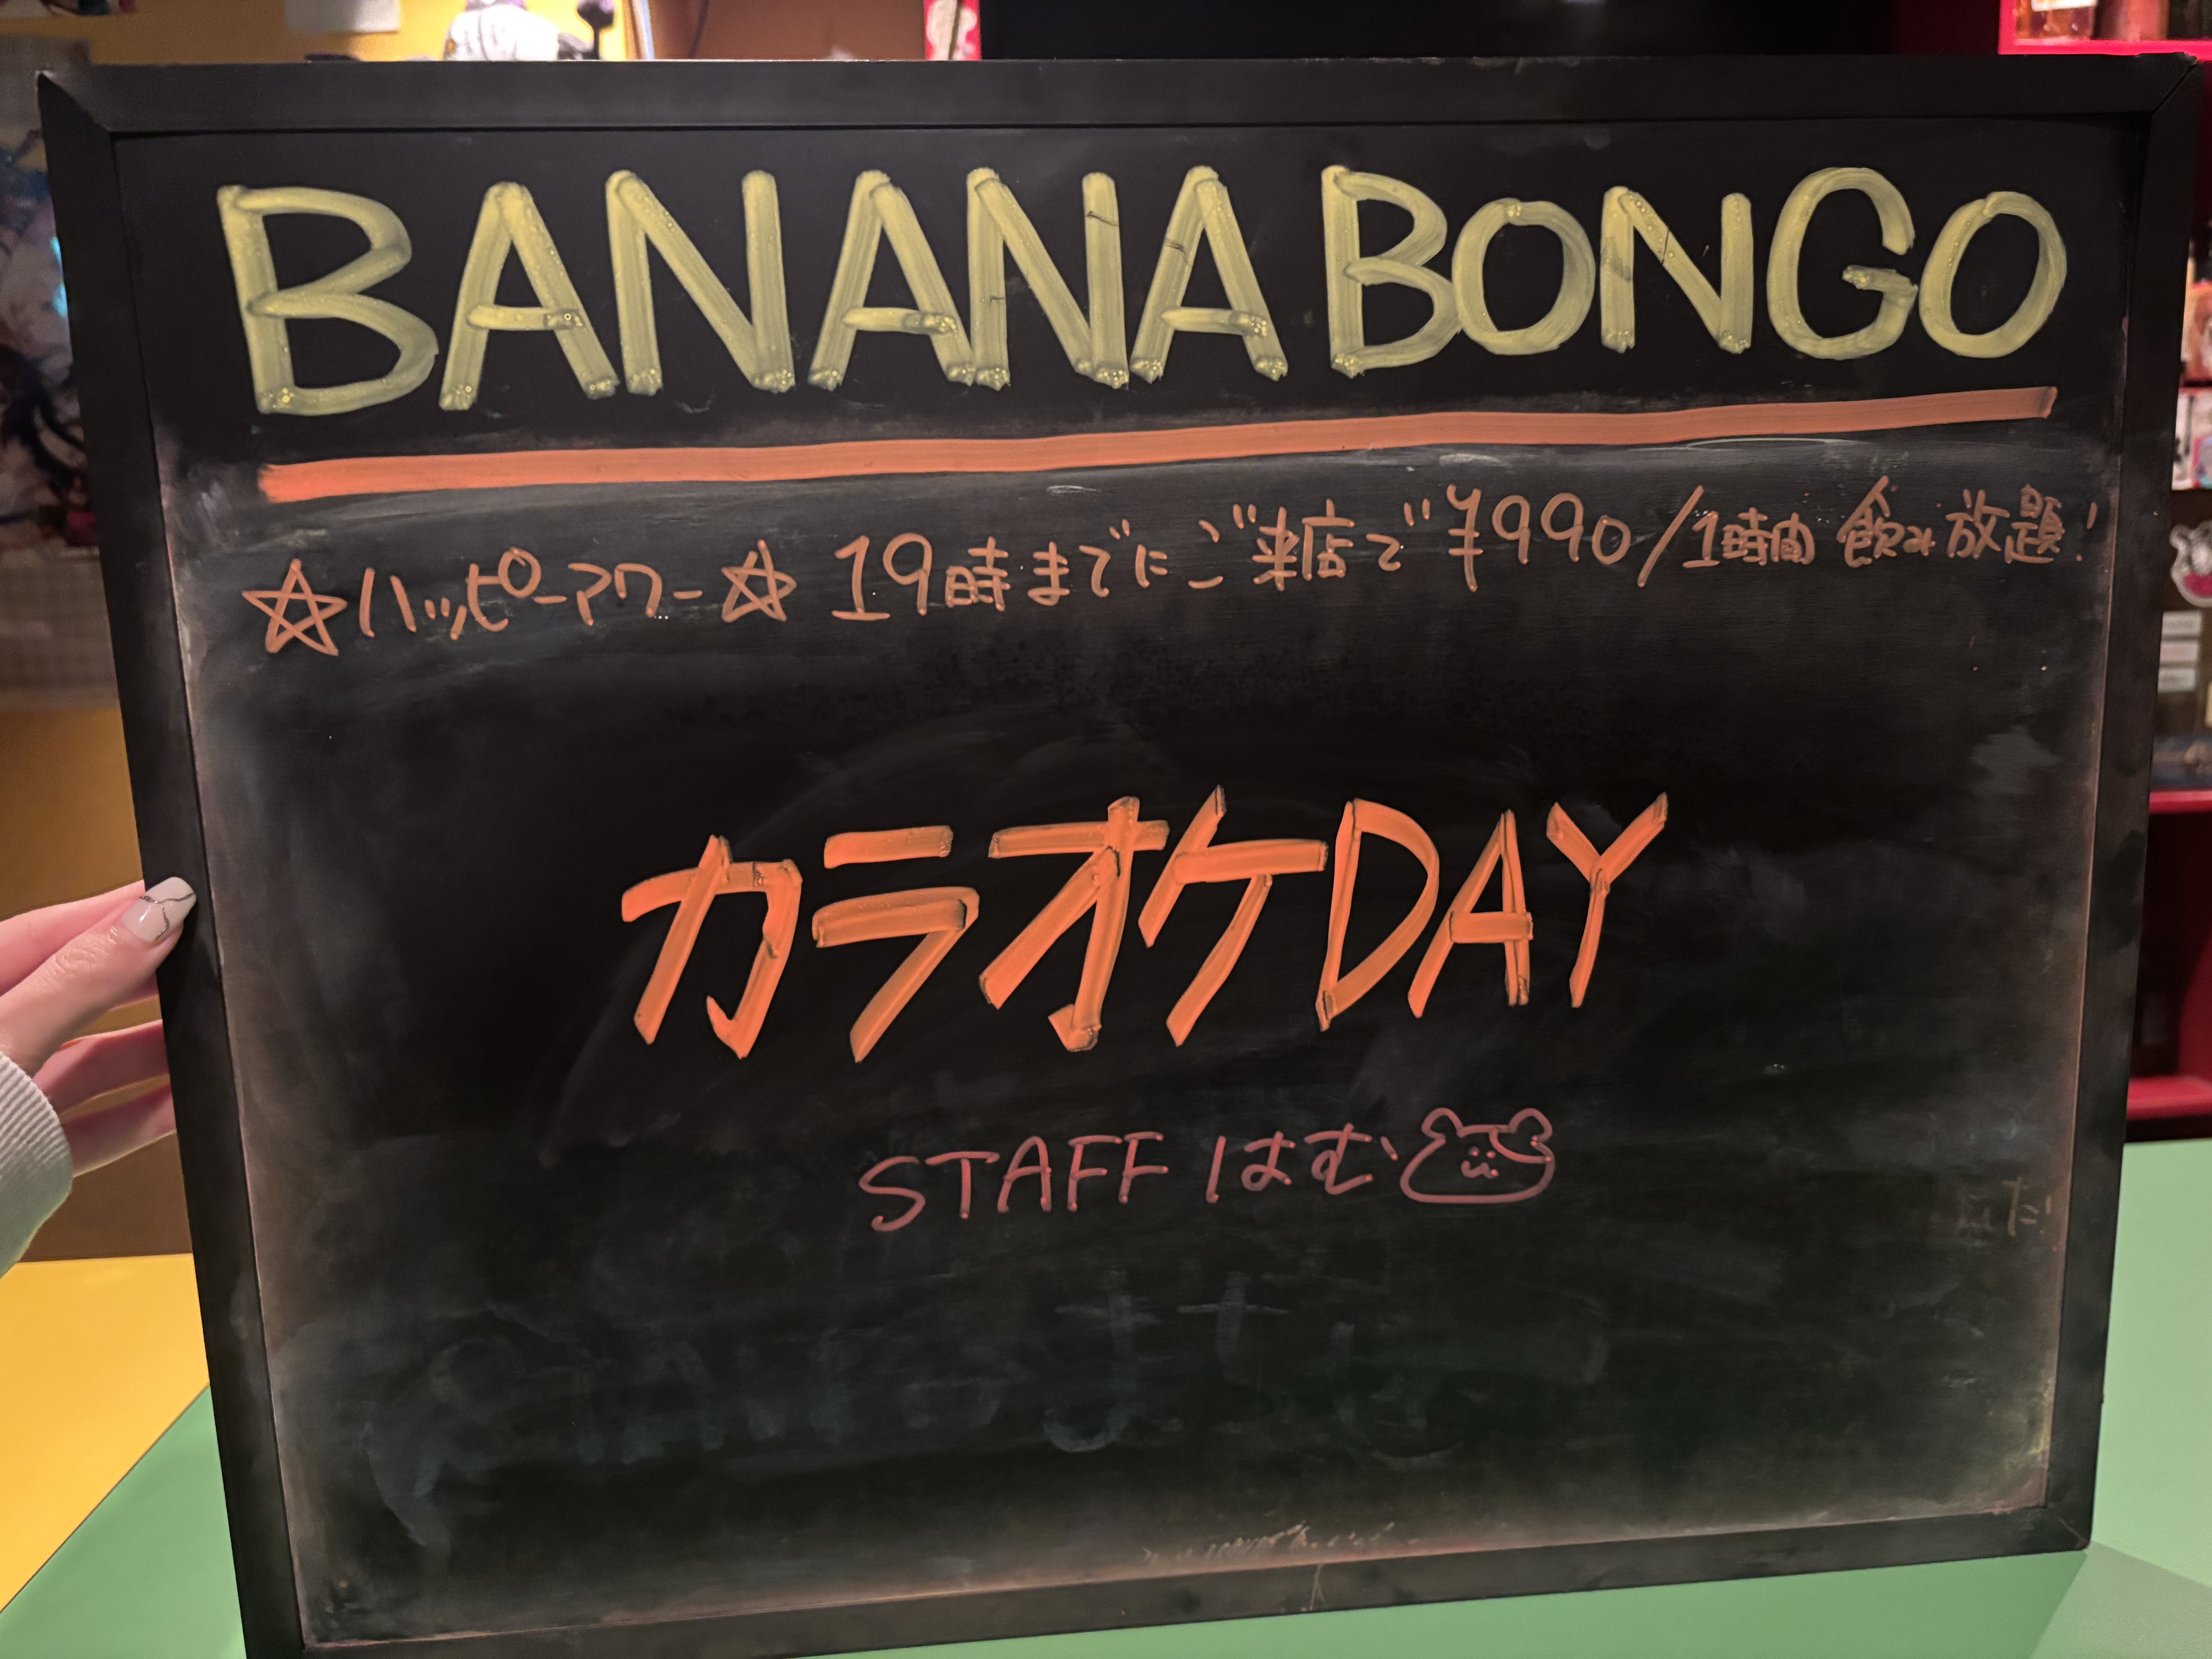 BANANA BONGO
☆ハッピーアワー☆ 19時までにご来店で ¥990/1時間 飲み放題!
カラオケDAY
STAFF はむ